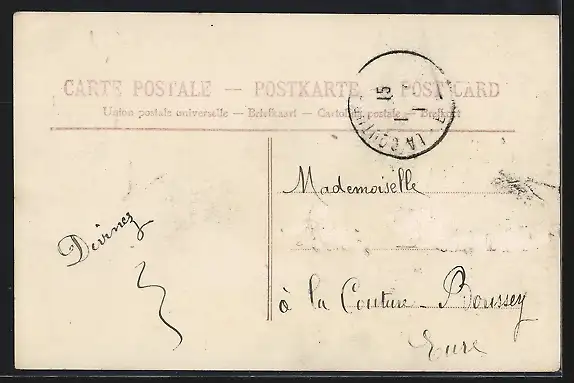 CARTE POSTALE — POSTKARTE — POST CARD
Union postale universelle — Briefkaart — Cartolina postale — Brefkort
15
1
LA COUTURE
Mademoiselle
Devinez
à la Couture - Boussey
Eure